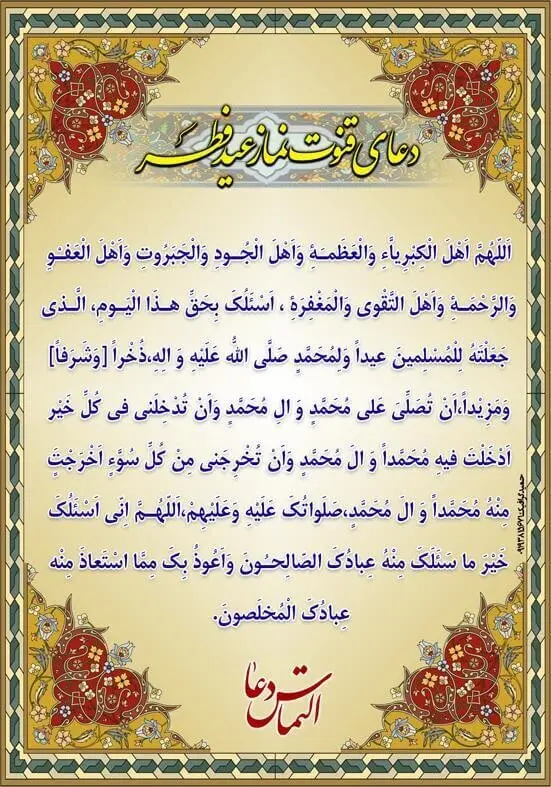 دعای قنوت نماز عید فطر
اَللّهُمَّ اَهْلَ الْکِبْرِیآءِ وَالْعَظَمَةِ وَاَهْلَ الْجُودِ وَالْجَبَرُوتِ وَاَهْلَ الْعَفْوِ
وَالرَّحْمَةِ وَاَهْلَ التَّقْوی وَالْمَغْفِرَةِ ، اَسْئَلُکَ بِحَقِّ هذَا الْیَومِ، الَّذی
جَعَلْتَهُ لِلْمُسْلِمینَ عیداً وَلِمُحَمَّدٍ صَلَّی اللّهُ عَلَیْهِ وَ الِهِ،ذُخْراً [وَشَرَفاً]
وَمَزِیْداً،اَنْ تُصَلِّیَ عَلی مُحَمَّدٍ وَ الِ مُحَمَّدٍ وَاَنْ تُدْخِلَنی فی کُلِّ خَیْرٍ
اَدْخَلْتَ فیهِ مُحَمَّداً وَ الَ مُحَمَّدٍ وَاَنْ تُخْرِجَنی مِنْ کُلِّ سُوَّءٍ اَخْرَجْتَ
مِنْهُ مُحَمَّداً وَ الَ مُحَمَّدٍ،صَلَواتُکَ عَلَیْهِ وَعَلَیْهِمْ،اَللّهُمَّ اِنّی اَسْئَلُکَ
خَیْرَ ما سَئَلَکَ مِنْهُ عِبادُکَ الصّالِحُونَ وَاَعُوذُ بِکَ مِمَّا اسْتَعاذَ مِنْهُ
عِبادُکَ الْمُخلَصونَ.
التماس دعا